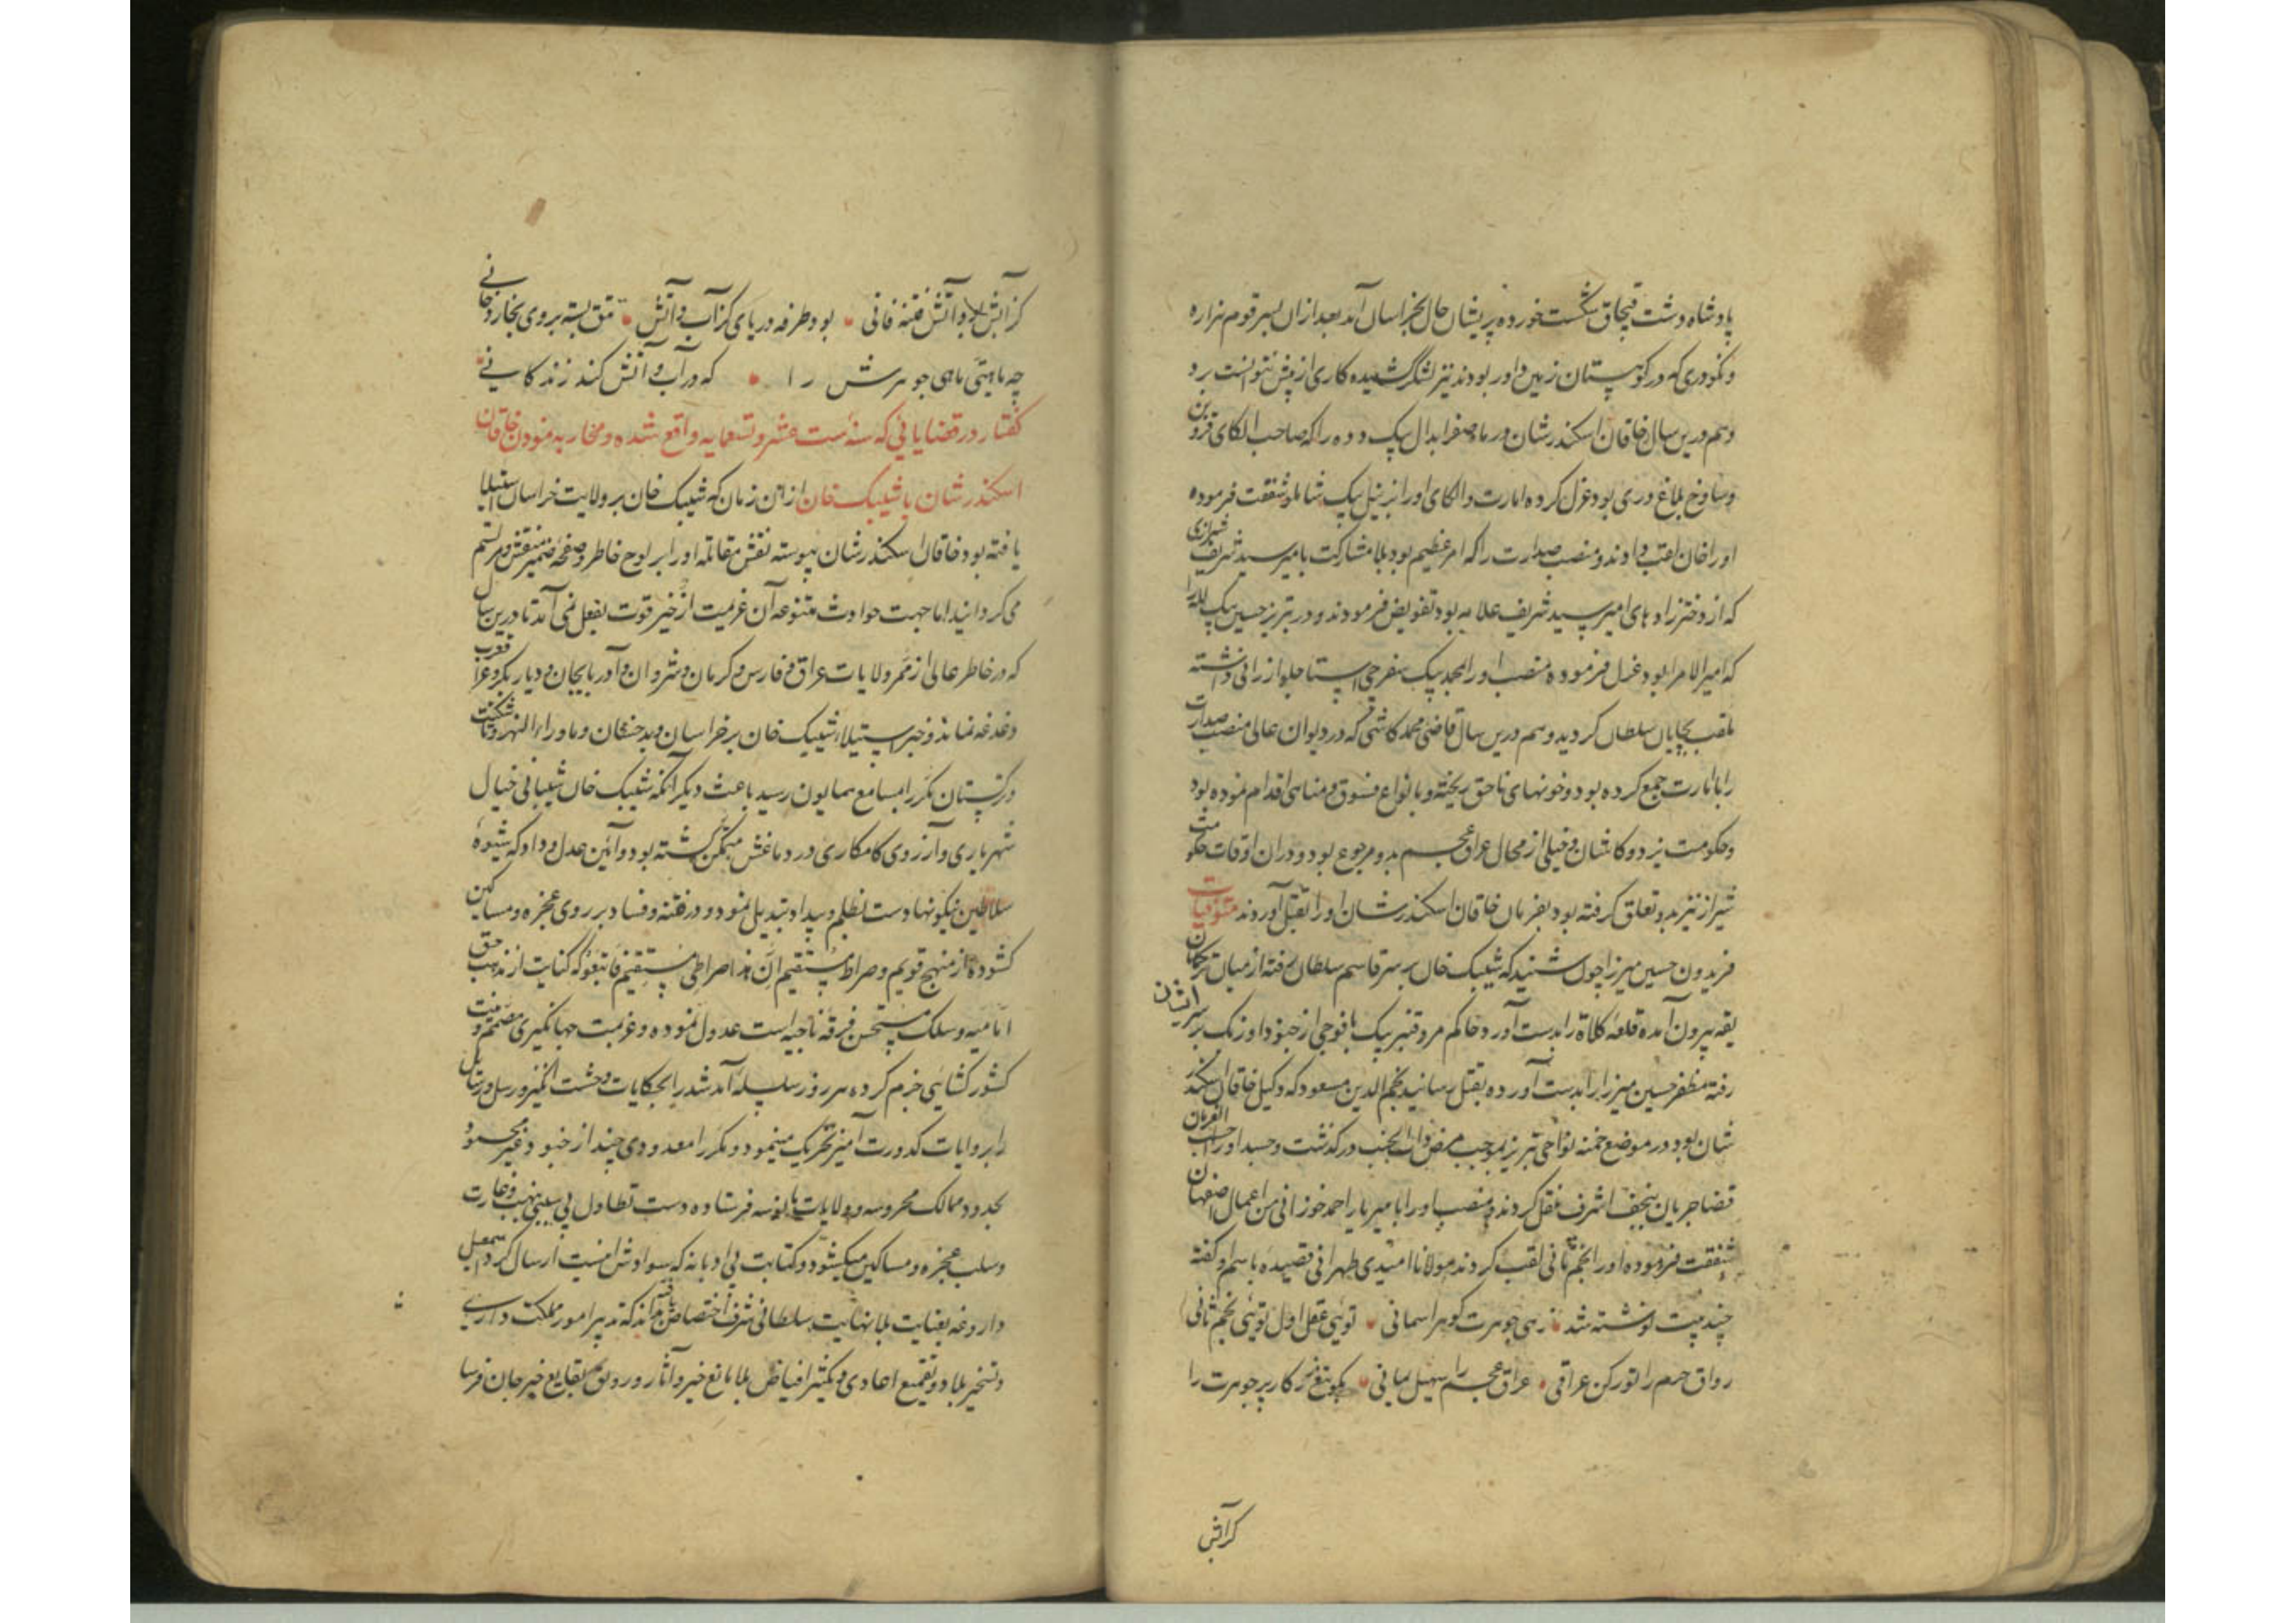 پادشاه دشت قبچاق شکست خورده پریشان حال بخراسان آمد بعد ازان بسر قوم هزاره
و نکودری که در کوهستان زمین داور بودند نیز لشکر کشیده کاری از پیش نتوانست برد
و هم درین سال خاقان اسکندر شان در ماه صفر ابدال بیک دده را که صاحب الکای قزوین
و ساوخ بلاغ و ری بود عزل کرده امارت و الکای او را بزینل بیک شاملو شفقت فرموده
او را خان لقب دادند و منصب صدارت را که امر عظیم بود بلا مشارکت بامیر سید شریف شیرازی
که از دختر زاد های امیر سید شریف علامه بود تفویض فرمودند و در تبریز حسین بیک لله را
که امیر الامرا بود عزل فرموده منصب او را بمحمد بیک سفره چی استاجلو ارزانی داشته
ملقب بچایان سلطان کردید و هم درین سال قاضی محمد کاشی که در دیوان عالی منصب صدارت
را با امارت جمع کرده بود و خونهای ناحق ریخته و بانواع فسوق و مناهی اقدام نموده بود
و حکومت یزد و کاشان و خیلی از محال عراق عجم بدو مرجوع بود و دران اوقات حکومت
شیراز نیز بدو تعلق کرفته بود بفرمان خاقان اسکندر شان او را بقتل آوردند متوفیات
فریدون حسین میرزا چون شنید که شیبک خان بر سر قاسم سلطان رفته از میان ترکمانان
یقه بیرون آمده قلعه کلاة را بدست آورد حاکم مرو قنبر بیک با فوجی از جنود اوزبک بر سر ایشان
رفته مظفر حسین میرزا را بدست آورده بقتل رسانید نجم الدین مسعود که وکیل خاقان اسکندر
شان بود در موضع خمنه نواحی تبریز بموجب مرض ذات الجنب درکذشت و جسد او را حسب الفرمان
قضا جریان بنجف اشرف نقل کردند و منصب او را بامیر یار احمد خوزانی من اعمال اصفهان
شفقت فرموده او را نجم ثانی لقب کردند مولانا امیدی طهرانی قصیده باسم او کفته
چند بیت نوشته شد زهی جوهرت کوهر اسمانی توئی عقل اول توئی نجم ثانی
رواق حرم را تو رکن عراقی عراق عجم را سهیل یمانی کار بر جوهرت را
کر آتش
کز آتش فتنه فانی بود طرفه دریای کز آب و آتش تتق بسته بر وی بخار و دخانی
چه ماهیتی ماهی جوهرش را که در آب و آتش کند زندکانی
کفتار در قضایایی که سنه ست عشر و تسعمایه واقع شده و محاربه نمودن خاقان
اسکندر شان با شیبک خان از آن زمان که شیبک خان بر ولایت خراسان استیلا
یافته بود خاقان اسکندر شان پیوسته نقش مقاتله او را بر لوح خاطر و صفحه ضمیر منقش و مرتسم
می کردانید اما جهت حوادث متنوعه آن عزیمت از حیز قوت بفعل نمی آمد تا درین سال
که در خاطر عالی از ممر ولایات عراق و فارس و کرمان و شروان و آذربایجان و دیار بکر و عراق عرب
دغدغه نماند و خبر استیلاء شیبک خان بر خراسان و بدخشان و ماوراء النهر و تاشکنت
و ترکستان مکرر بمسامع همایون رسید باعث دیکر آنکه شیبک خان شیبانی خیال
شهریاری و آرزوی کامکاری در دماغش متمکن کشته بود و آئین عدل و داد که شیوه
سلاطین نیکو نهادست بظلم و بیداد تبدیل نمود و در فتنه و فساد بر روی عجزه و مساکین
کشوده از منهج قویم و صراط مستقیم ان هذا صراطی مستقیم فاتبعوه که کنایت از مذهب حق
امامیه و سلک مستحسن فرقه ناجیه است عدول نموده و عزیمت جهانکیری مصمم و نیت
کشور کشایی جزم کرده هر روز سلسله آمد شد را بحکایات وحشت انکیز و رسل و رسایل
را بروایات کدورت آمیز تحریک مینمود و مکرر معدودی چند از جنود غیر محمود
بحدود ممالک محروسه و ولایات مانوسه فرستاده دست تطاول بی سببی بنهب و غارت
و سلب عجزه و مساکین میکشود و کتابت بی ادبانه که سوادش اینست ارسال کرد اسمعیل
داروغه بعنایت بلا نهایت سلطانی شرف اختصاص یافته بداند که تدبیر امور مملکت داری
و تسخیر بلاد و تقمیع اعادی و تکثیر افیاض بلا مانع خیر و آثار جان فرسا